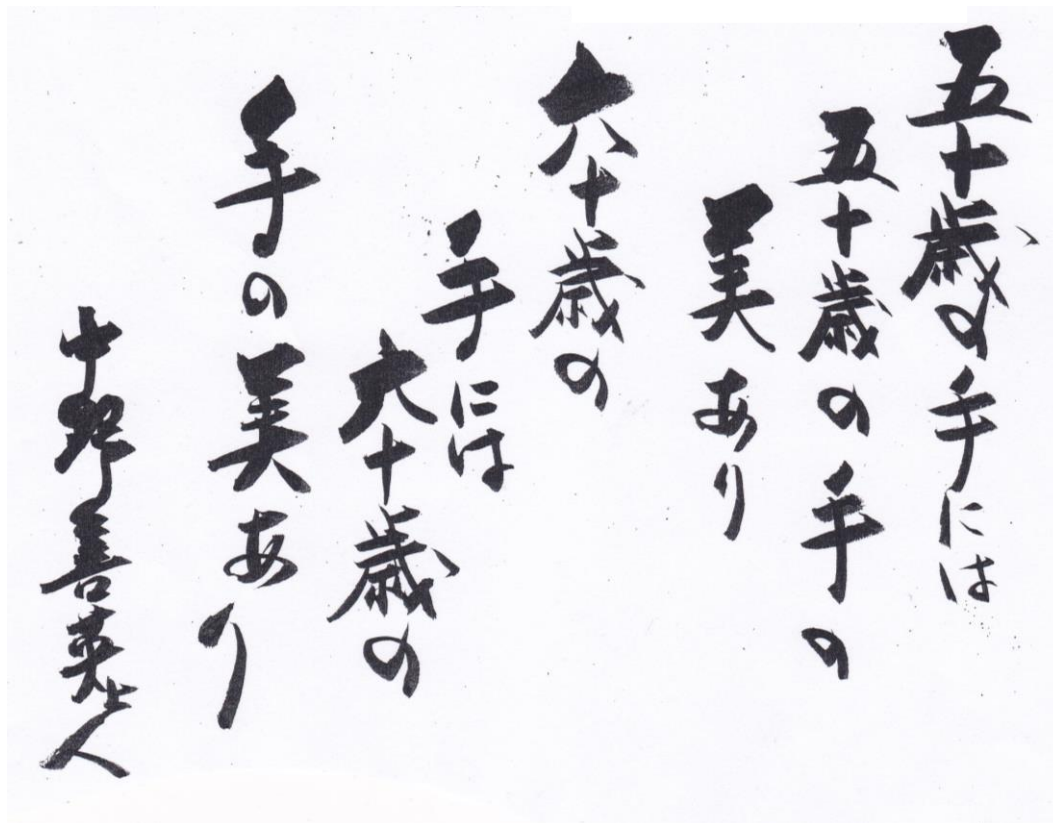 五十歳の手には
五十歳の手の
美あり
六十歳の
手には
六十歳の
手の美あり
中野善英上人